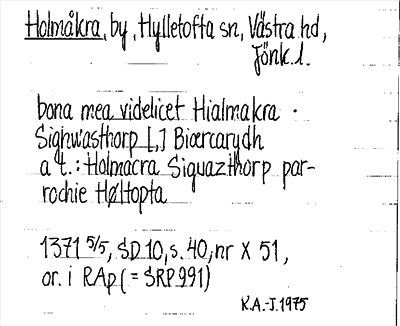 Holmåkra, by, Hylletofta sn, Västra hd,
Jönk. l.
bona mea videlicet Hialmakra .
Sighwasthorp [,] Biærcarydh
a t.: Holmacra Siguazthorp par-
rochie Høltopta
1371 5/5, SD 10, s. 40, nr X 51,
or. i RAp (= SRP 991)
K.A.-J. 1975